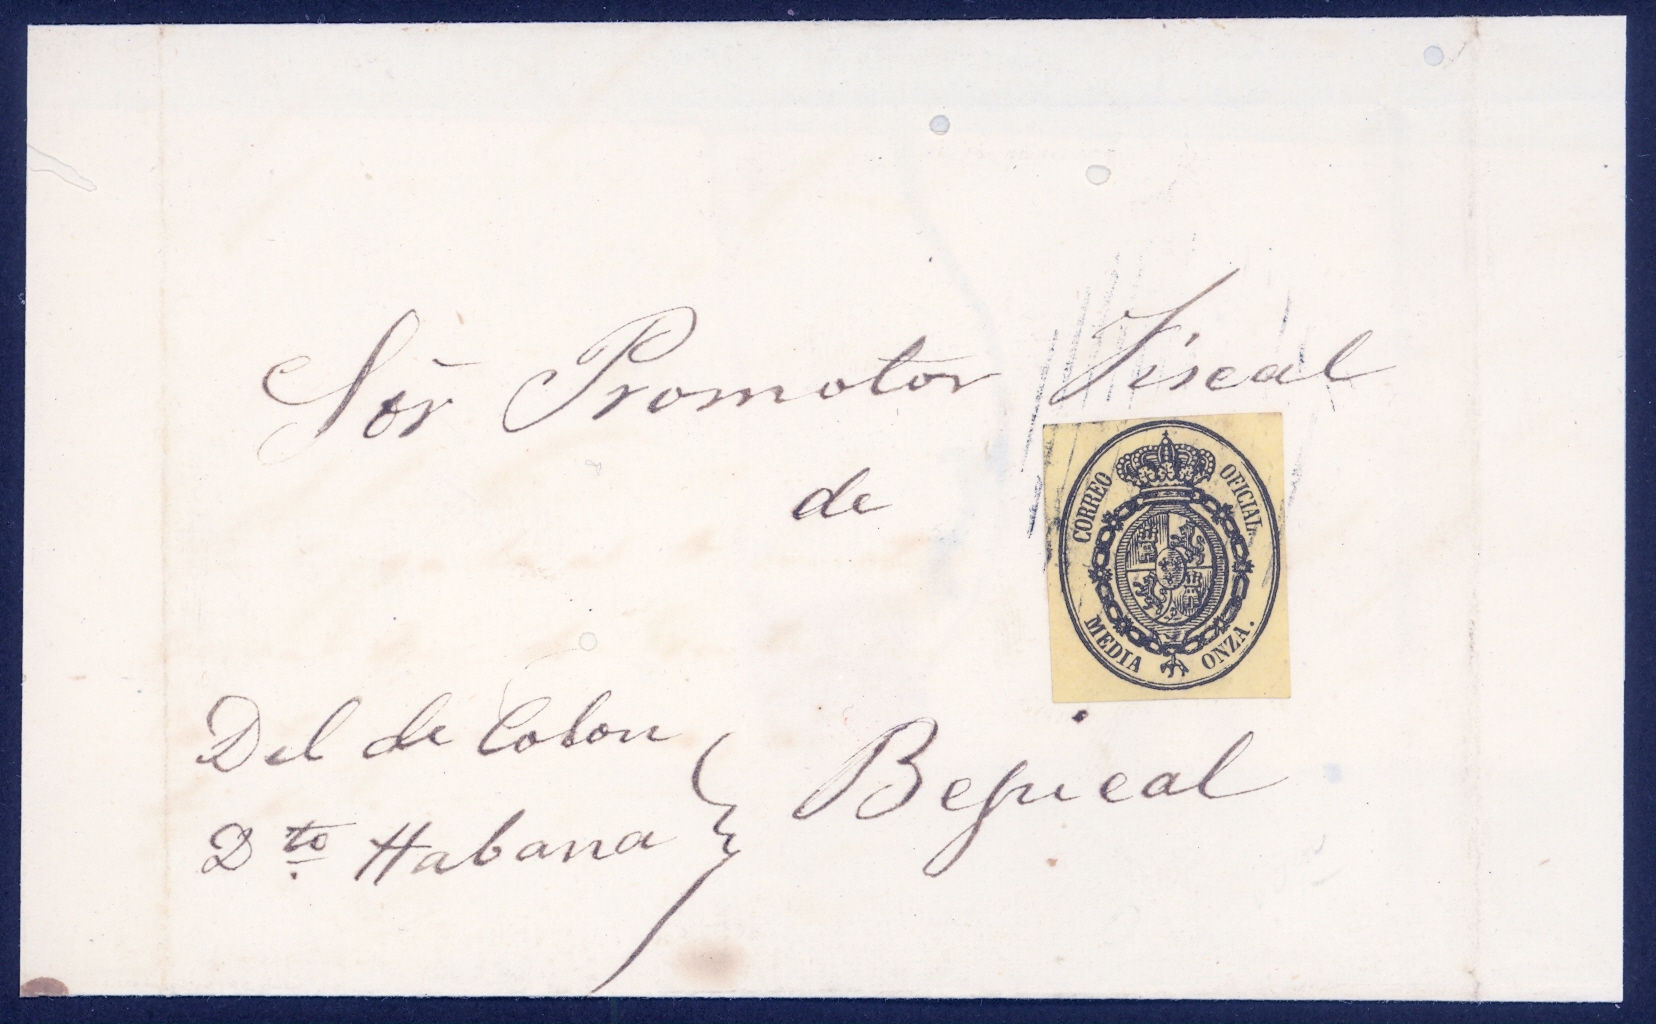 Sõr Promotor Fiscal
de
CORREO OFICIAL.
MEDIA ONZA.
Del de Colon
Dto. Habana
Bejucal